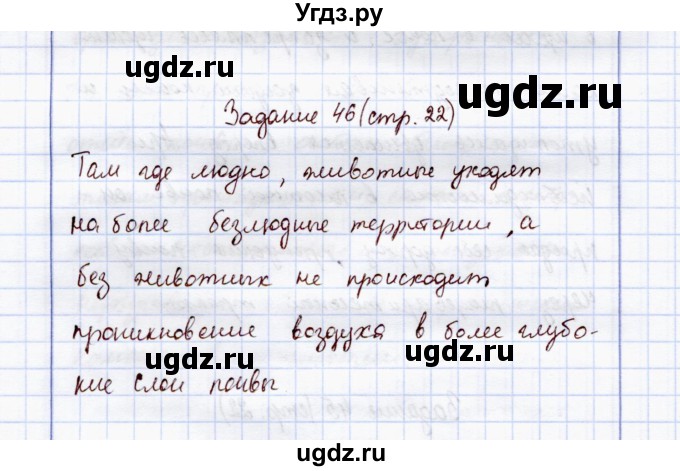 Угдз.ру
ugdz.ru ugdz.ru
ugdz.ru
Задание 46 (стр. 22)
Там где людно, животные уходят
на более безлюдные территории, а
без животных не происходит
проникновение воздуха в более глубо-
кие слои почвы.
ugdz.ru ugdz.ru
ugdz.ru ugdz.ru
ugdz.ru ugdz.ru
ugdz.ru